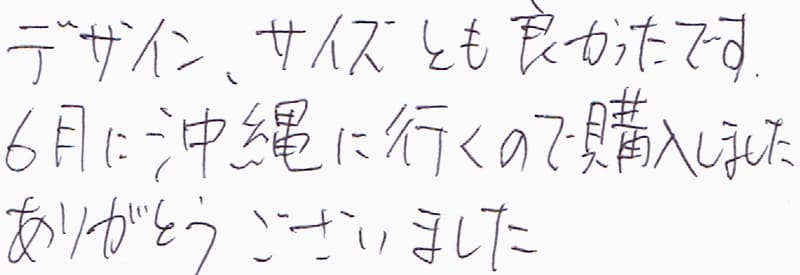 デザイン、サイズとも良かったです.
6月に沖縄に行くので購入しました
ありがとうございました